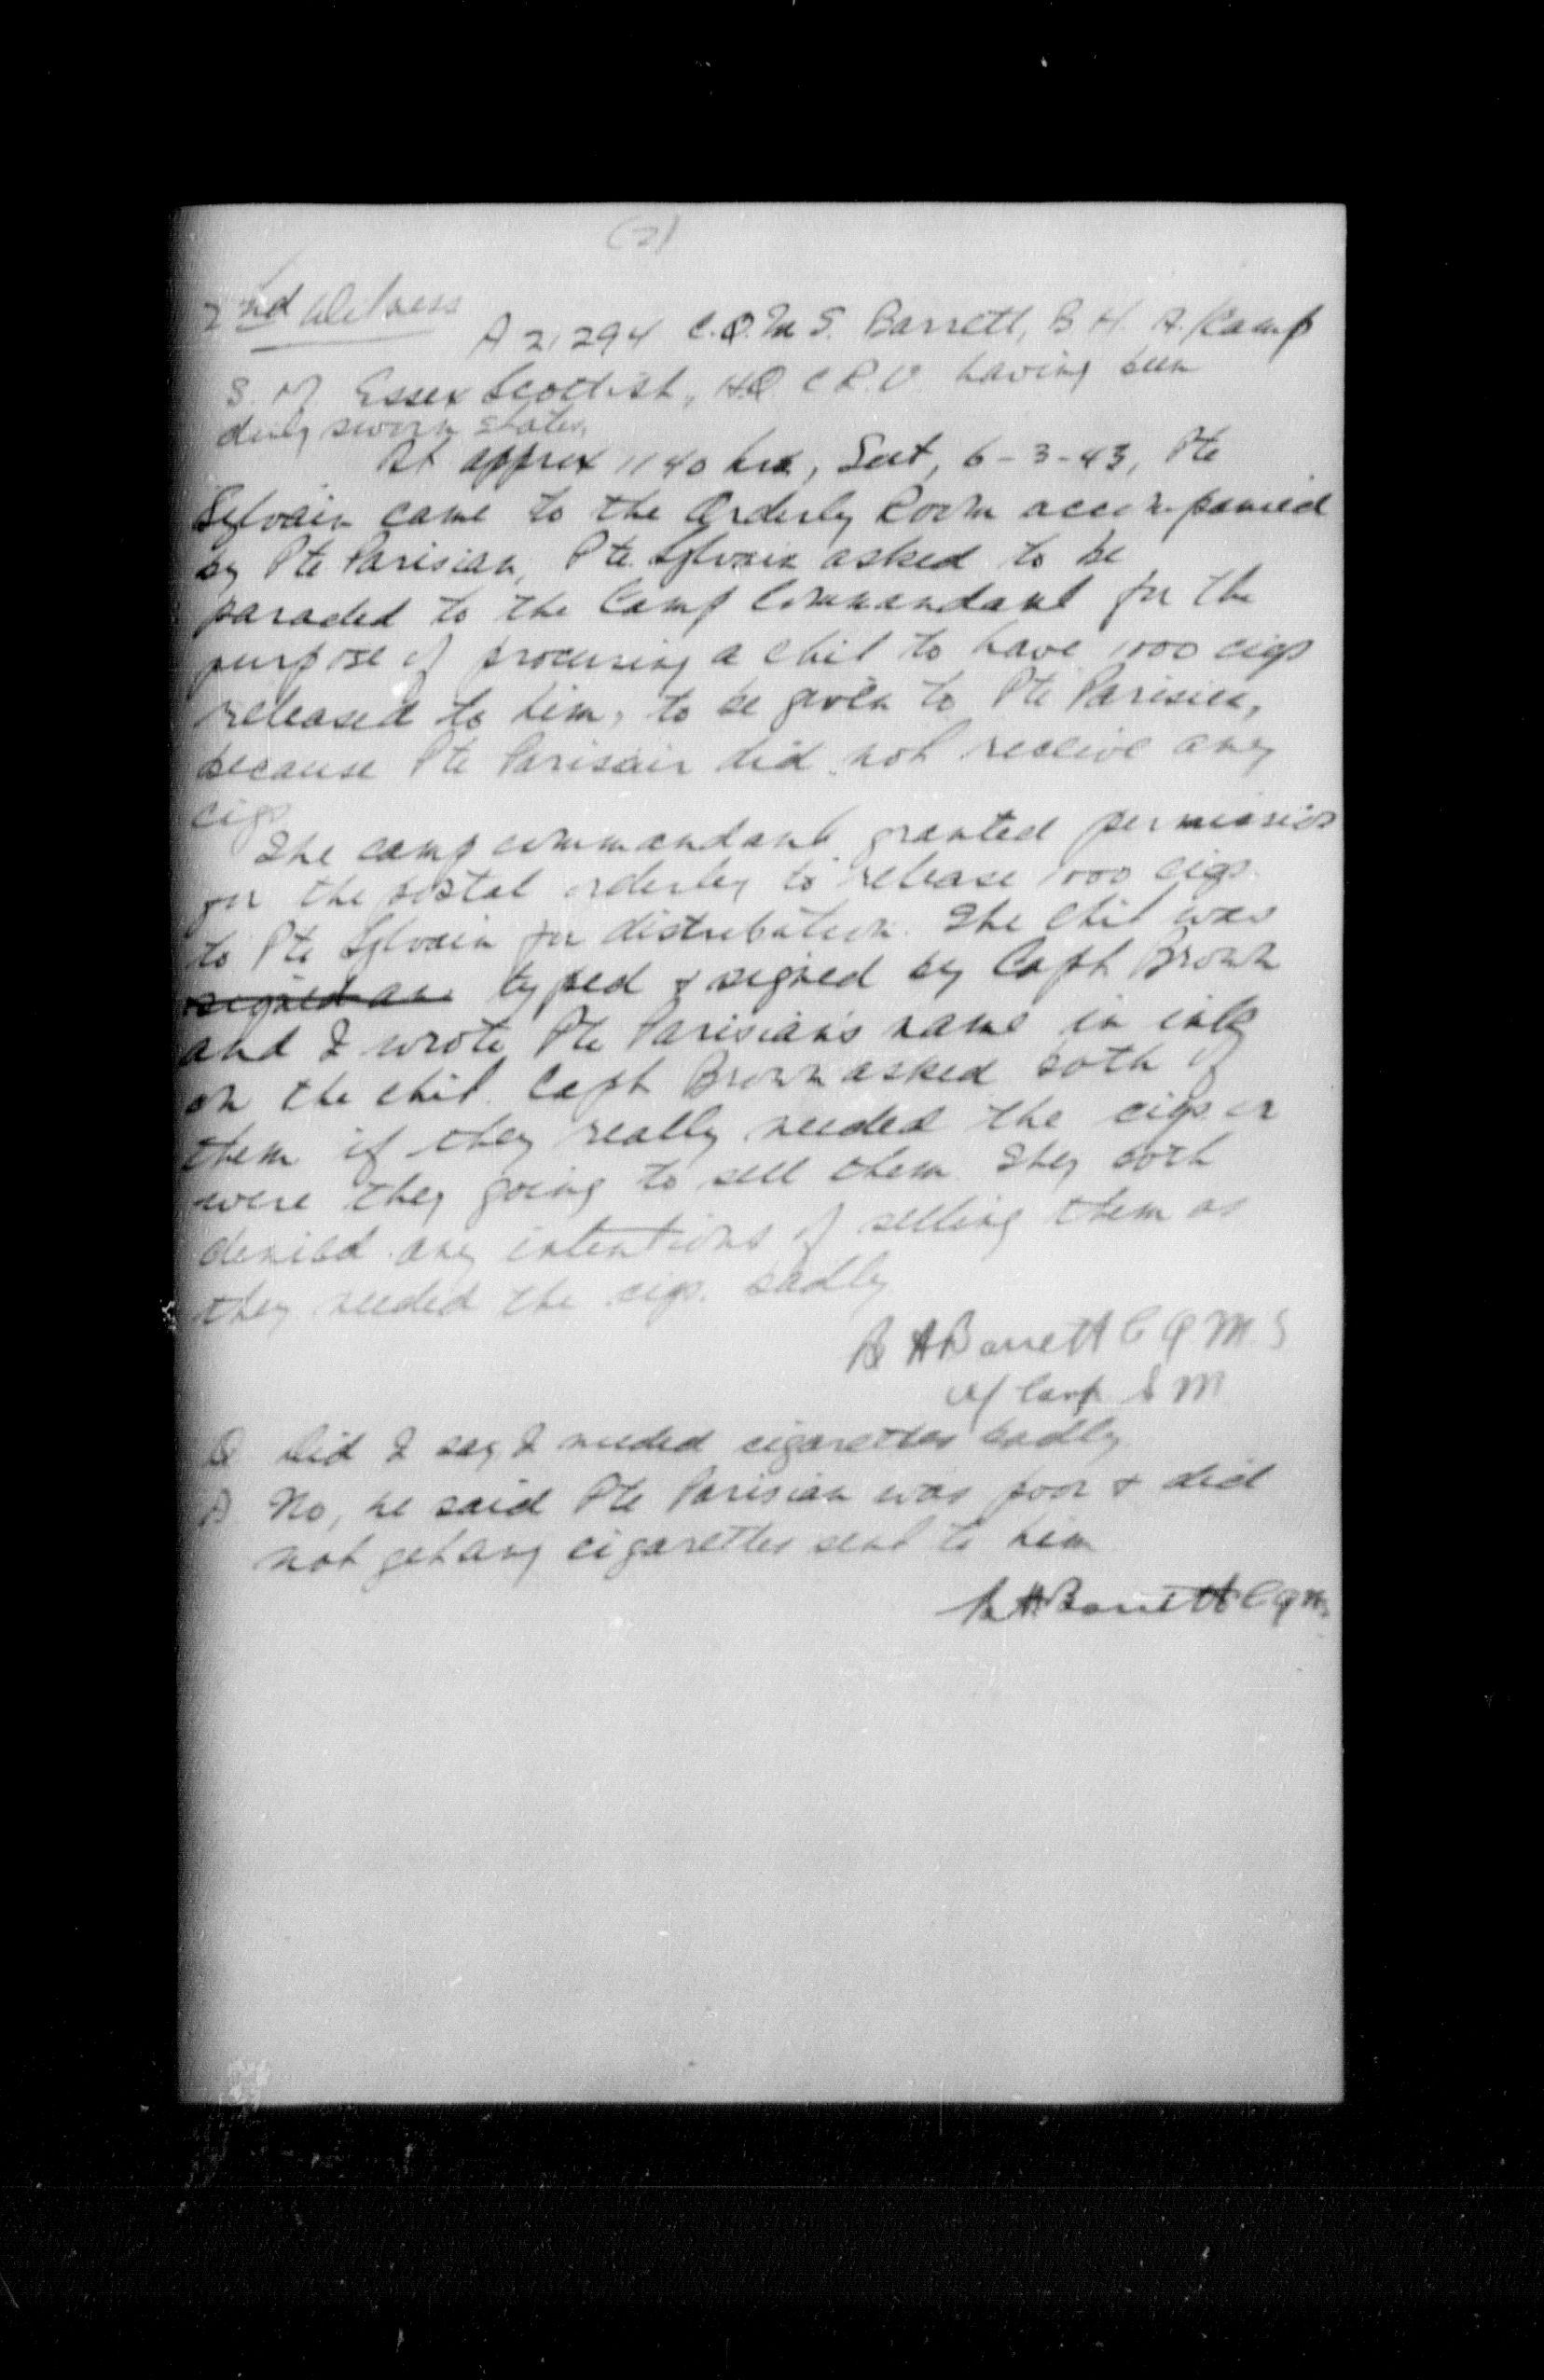 (2)
2nd Witness
A 21294 C.Q.M.S. Barrett, B. H. A/Camp
S. M. Essex Scottish, HQ C R U having been
duly sworn states,
At approx 1140 hrs, Sat, 6-3-43, Pte
Sylvain came to the Orderly Room accompanied
by Pte Parisian, Pte. Sylvain asked to be
paraded to the Camp Commandant for the
purpose of procuring a chit to have 1000 cigs
released to him, to be given to Pte Parisien,
because Pte Parisain did not receive any
cigs
The camp commandant granted permission
for the postal orderley to release 1000 cigs.
to Pte Sylvain for distribution. The chit was
signed an typed & signed by Capt Brown
and I wrote Pte Parisian's name in ink
on the chit. Capt Brown asked both of
them if they really needed the cigs or
were they going to sell them. They both
denied any intentions of selling them as
they needed the cigs. badly
B H Barrett C Q M S
A/ Camp S M
Q Did I say I needed cigarettes badly
A No, he said Pte Parisian was poor & did
not get any cigarettes sent to him
B H Barrett CQMS